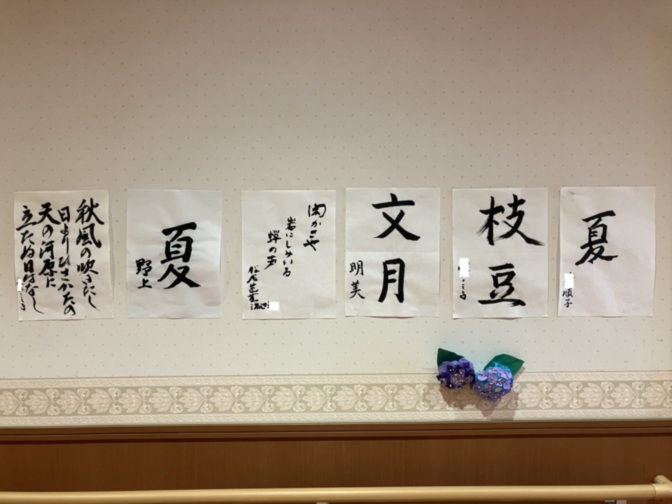 秋風の吹きにし
日よりひさかたの
天の河原に
立たぬ日はなし
夏
野上
閑かさや
岩にしみいる
蝉の声
松尾芭蕉
文月
明美
枝豆
夏
順子